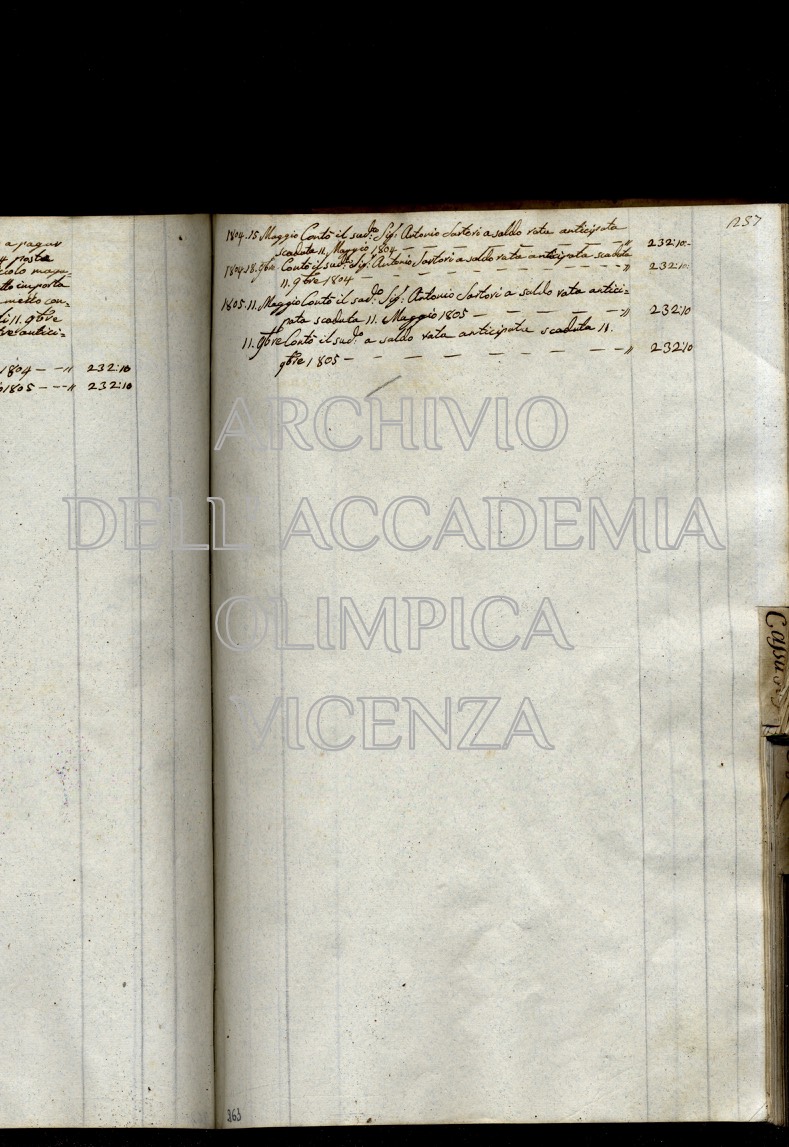 a pagar
posta
importa
mezzo con=
li 11. 9bre
antici=
1804 — — " 232:10
1805 — — " 232:10
1237
1804. 15 Maggio Contò il sud.o Sig.r Antonio Sartori a saldo rata anticipata
scaduta 11. Maggio 1804 — — — — — — — " 232:10:-
1804. 18. 9bre Contò il sud.o Sig.r Antonio Sartori a saldo rata anticipata scaduta
11. 9bre 1804 — — — — — — — — " 232:10:
1805. 11. Maggio Contò il sud.o Sig.r Antonio Sartori a saldo rata antici=
pata scaduta 11. Maggio 1805 — — — — — " 232:10
11. 9bre Contò il sud.o a saldo rata anticipata scaduta 11.
9bre 1805 — — — — — — — — — " 232:10
ARCHIVIO
DELL'ACCADEMIA
OLIMPICA
VICENZA
363